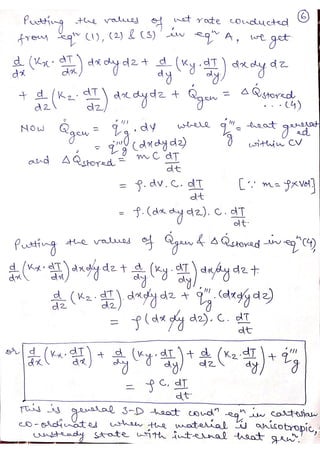 Putting the values of net rate conducted ⑥
from eqⁿ (1), (2) & (3) in eqⁿ A, we get
d/dx (Kx. dT/dx) dx dy dz + d/dy (Ky. dT/dy) dx dy dz
+ d/dz (Kz. dT/dz) dx dy dz + Q̇gen = ΔQ̇stored ...(4)
NOW Q̇gen = q̇'''g . dV where q̇'''g = heat generated
= q̇'''g (dx dy dz) within CV
and ΔQ̇stored = m C dT/dt
= ρ. dv. C. dT/dt [∵ m = ρ×Vol]
= ρ. (dx dy dz). C. dT/dt
Putting the values of Q̇gen & ΔQ̇stored in eqⁿ(4),
d/dx (Kx. dT/dx) dx dy dz + d/dy (Ky. dT/dy) dx dy dz +
d/dz (Kz. dT/dz). dx dy dz + q̇'''g. (dx dy dz)
= ρ (dx dy dz). C. dT/dt
or d/dx (Kx. dT/dx) + d/dy (Ky. dT/dy) + d/dz (Kz. dT/dy) + q̇'''g
= ρ C. dT/dt
This is general 3-D heat condⁿ eqⁿ in cartesian
co-ordinates when the material is anisotropic,
unsteady state with internal heat genⁿ.